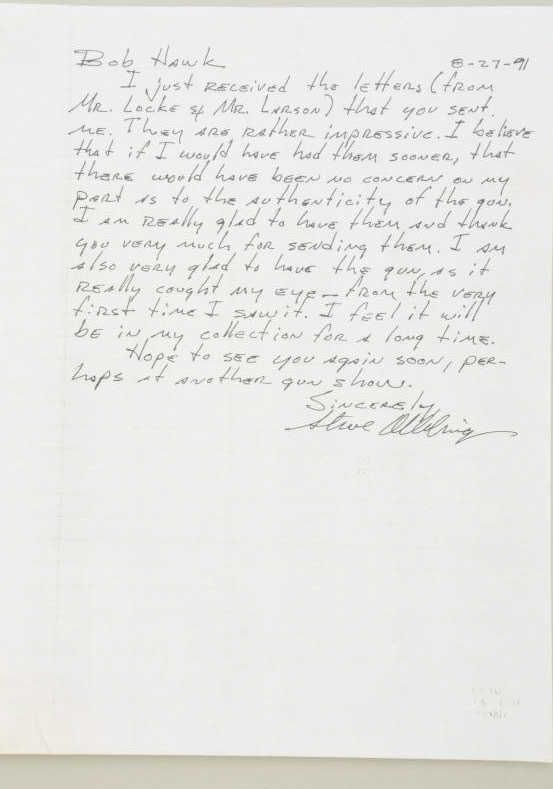 Bob Hawk 8-27-91
I just received the letters (from
Mr. Locke & Mr. Larson) that you sent
me. They are rather impressive. I believe
that if I would have had them sooner, that
there would have been no concern on my
part as to the authenticity of the gun.
I am really glad to have them and thank
you very much for sending them. I am
also very glad to have the gun, as it
really caught my eye – from the very
first time I saw it. I feel it will
be in my collection for a long time.
Hope to see you again soon, per-
haps at another gun show.
Sincerely
Steve